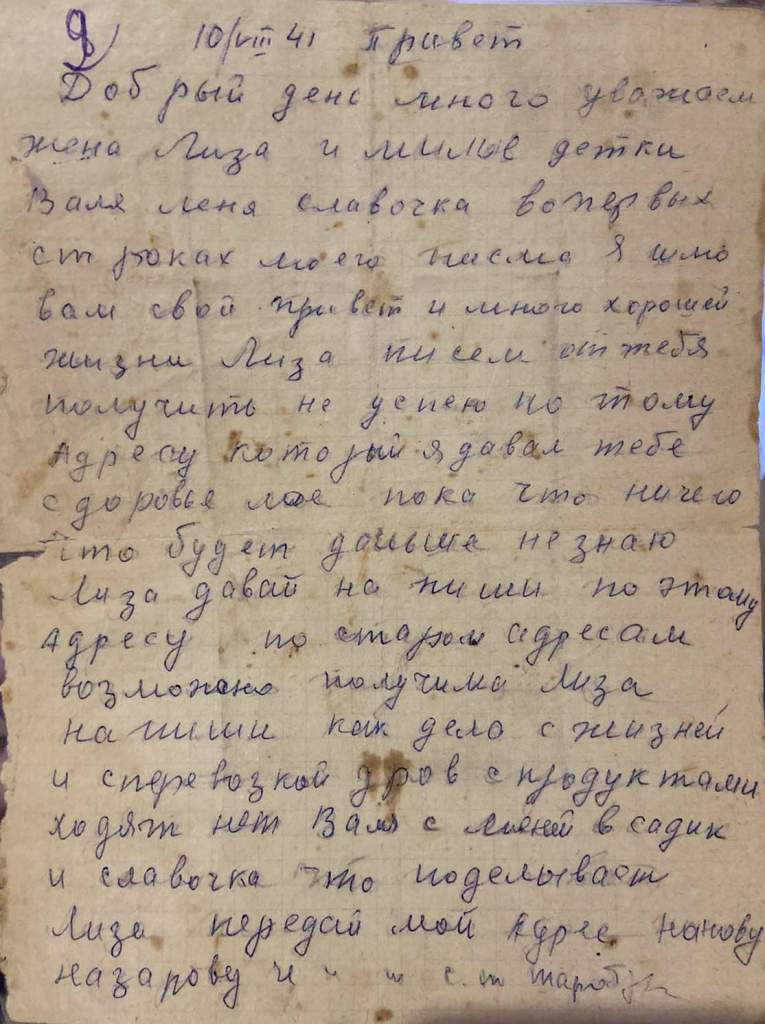 9) 10/VIII 41 Привет
Добрый день много уважаем
жена Лиза и милые детки
Валя Леня Славочка во первых
строках моего писма я шлю
вам свой привет и много хорошей
жизни Лиза писем от тебя
получить не успею по тому
Адресу который я давал тебе
сдоровье мое пока что ничего
что будет дальше не знаю
Лиза давай на пиши по этому
Адресу по старом адресам
возможно получима Лиза
на пиши как дело с жизней
и сперевозкой дров с продуктами
ходят нет Валя с Леней в садик
и славочка что поделывает
Лиза передай мой Адрес
назарову